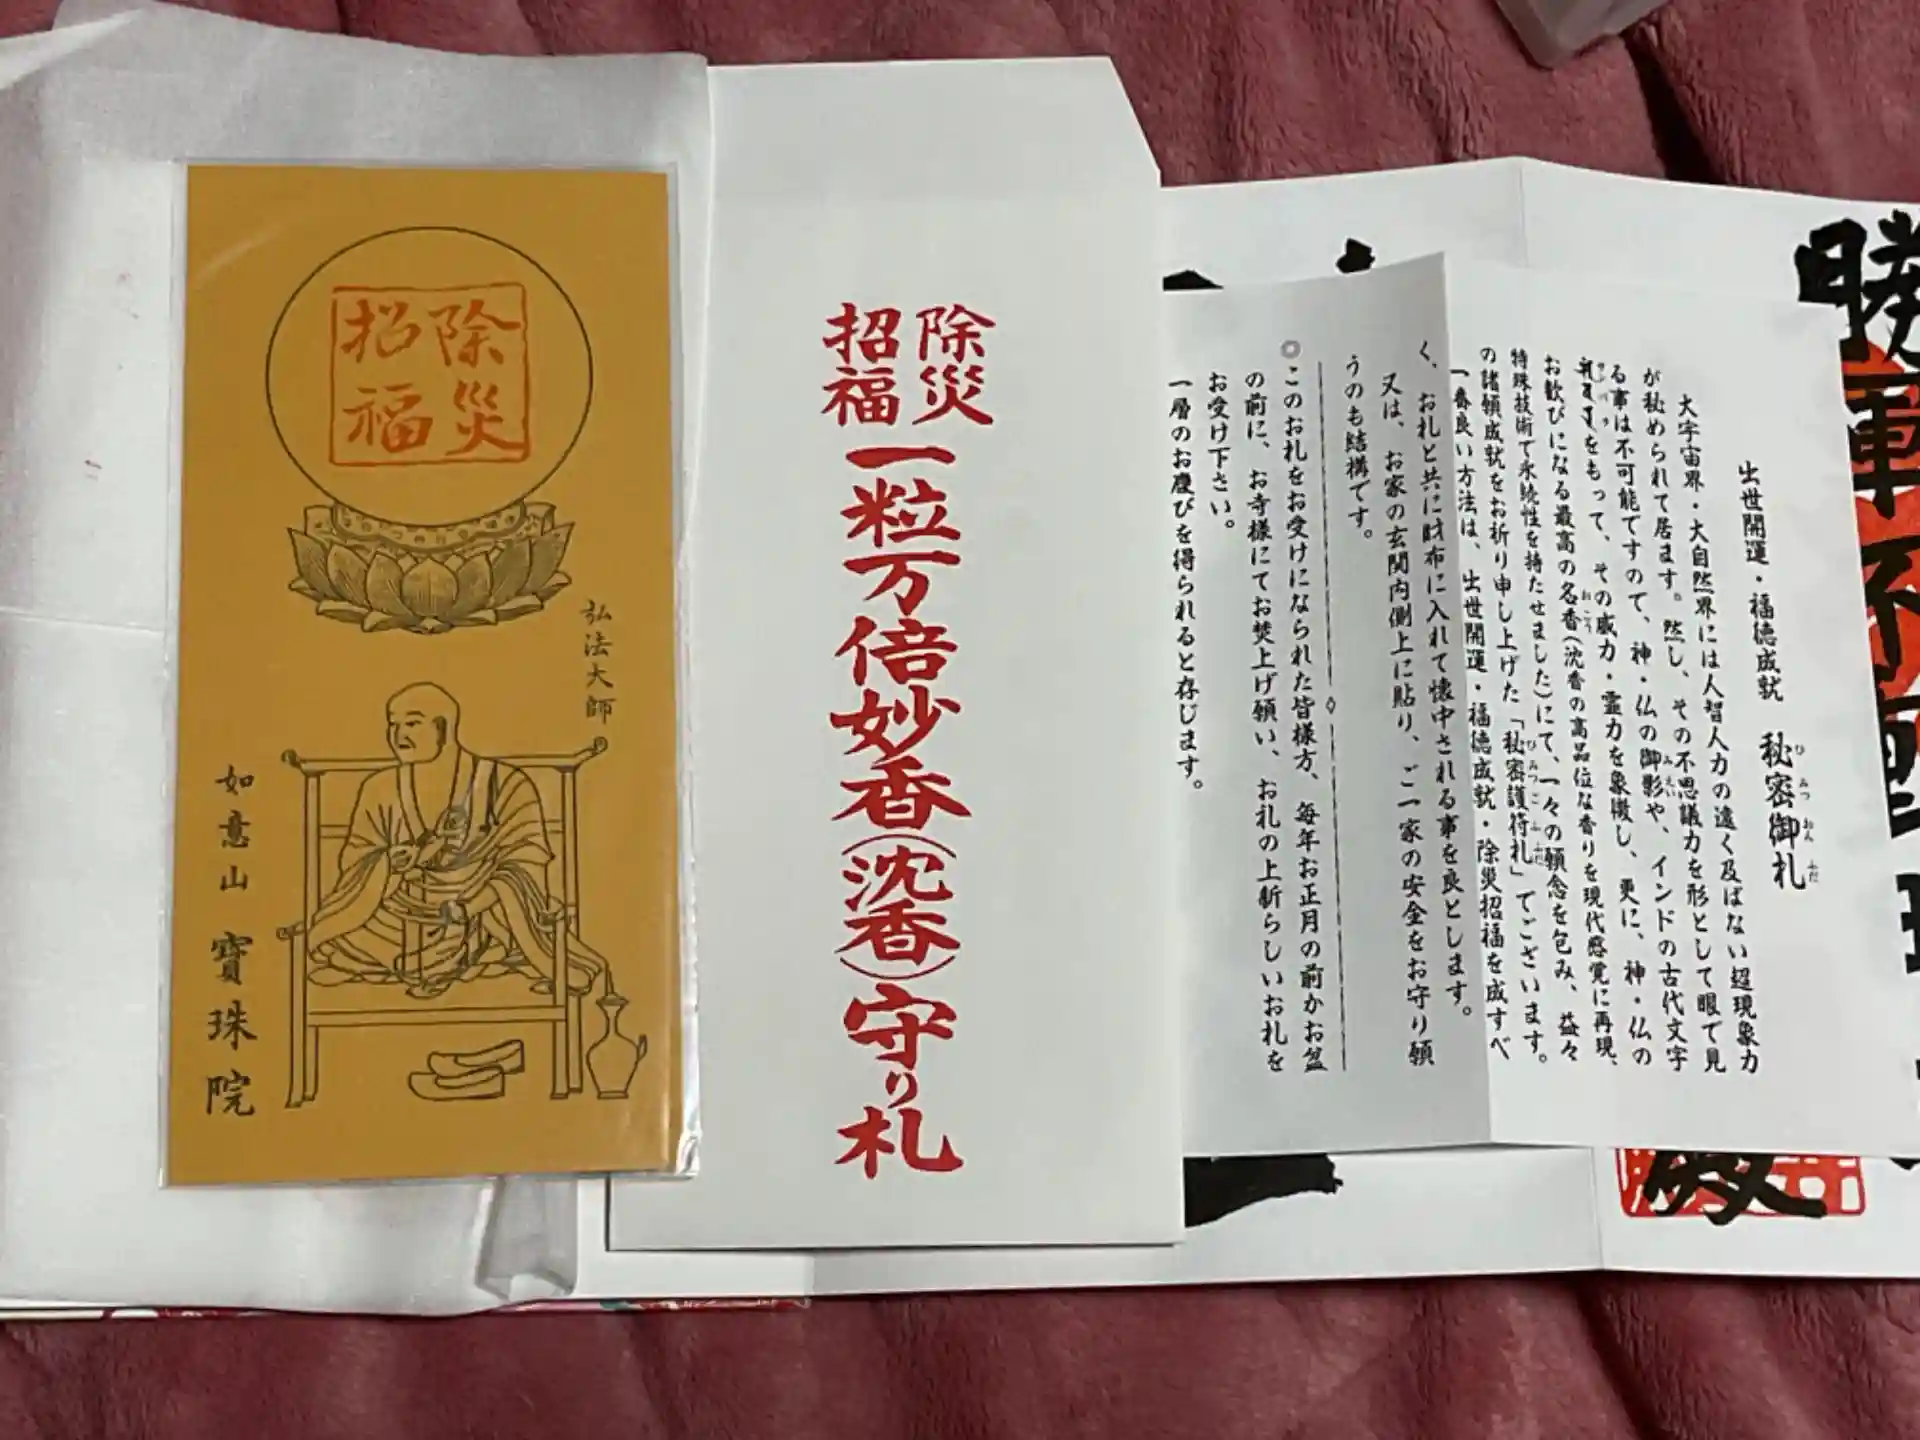 除災
招福
弘法大師
如意山 寶珠院
除災
招福
一粒万倍妙香(沈香)守り札
出世開運・福徳成就 秘密御札
ひみつおんふだ
大宇宙界・大自然界には人智人力の遠く及ばない超現象力
が秘められて居ます。然し、その不思議力を形として眼で見
る事は不可能ですので、神・仏の御影や、インドの古代文字
みえい
をもって、その威力・霊力を象徴し、更に、神・仏の
お歓びになる最高の名香(沈香の高品位な香りを現代感覚に再現、
おこう
特殊技術で永続性を持たせました)にて、一々の願念を包み、益々
の諸願成就をお祈り申し上げた「秘密護符札」でございます。
ひみつごふだ
一番良い方法は、出世開運・福徳成就・除災招福を成すべ
く、お札と共に財布に入れて懐中される事を良とします。
又は、お家の玄関内側上に貼り、ご一家の安全をお守り願
うのも結構です。
◎このお札をお受けになられた皆様方、毎年お正月の前かお盆
の前に、お寺様にてお焚上げ願い、お札の上新らしいお札を
お受け下さい。
一層のお慶びを得られると存じます。
勝軍不
殿